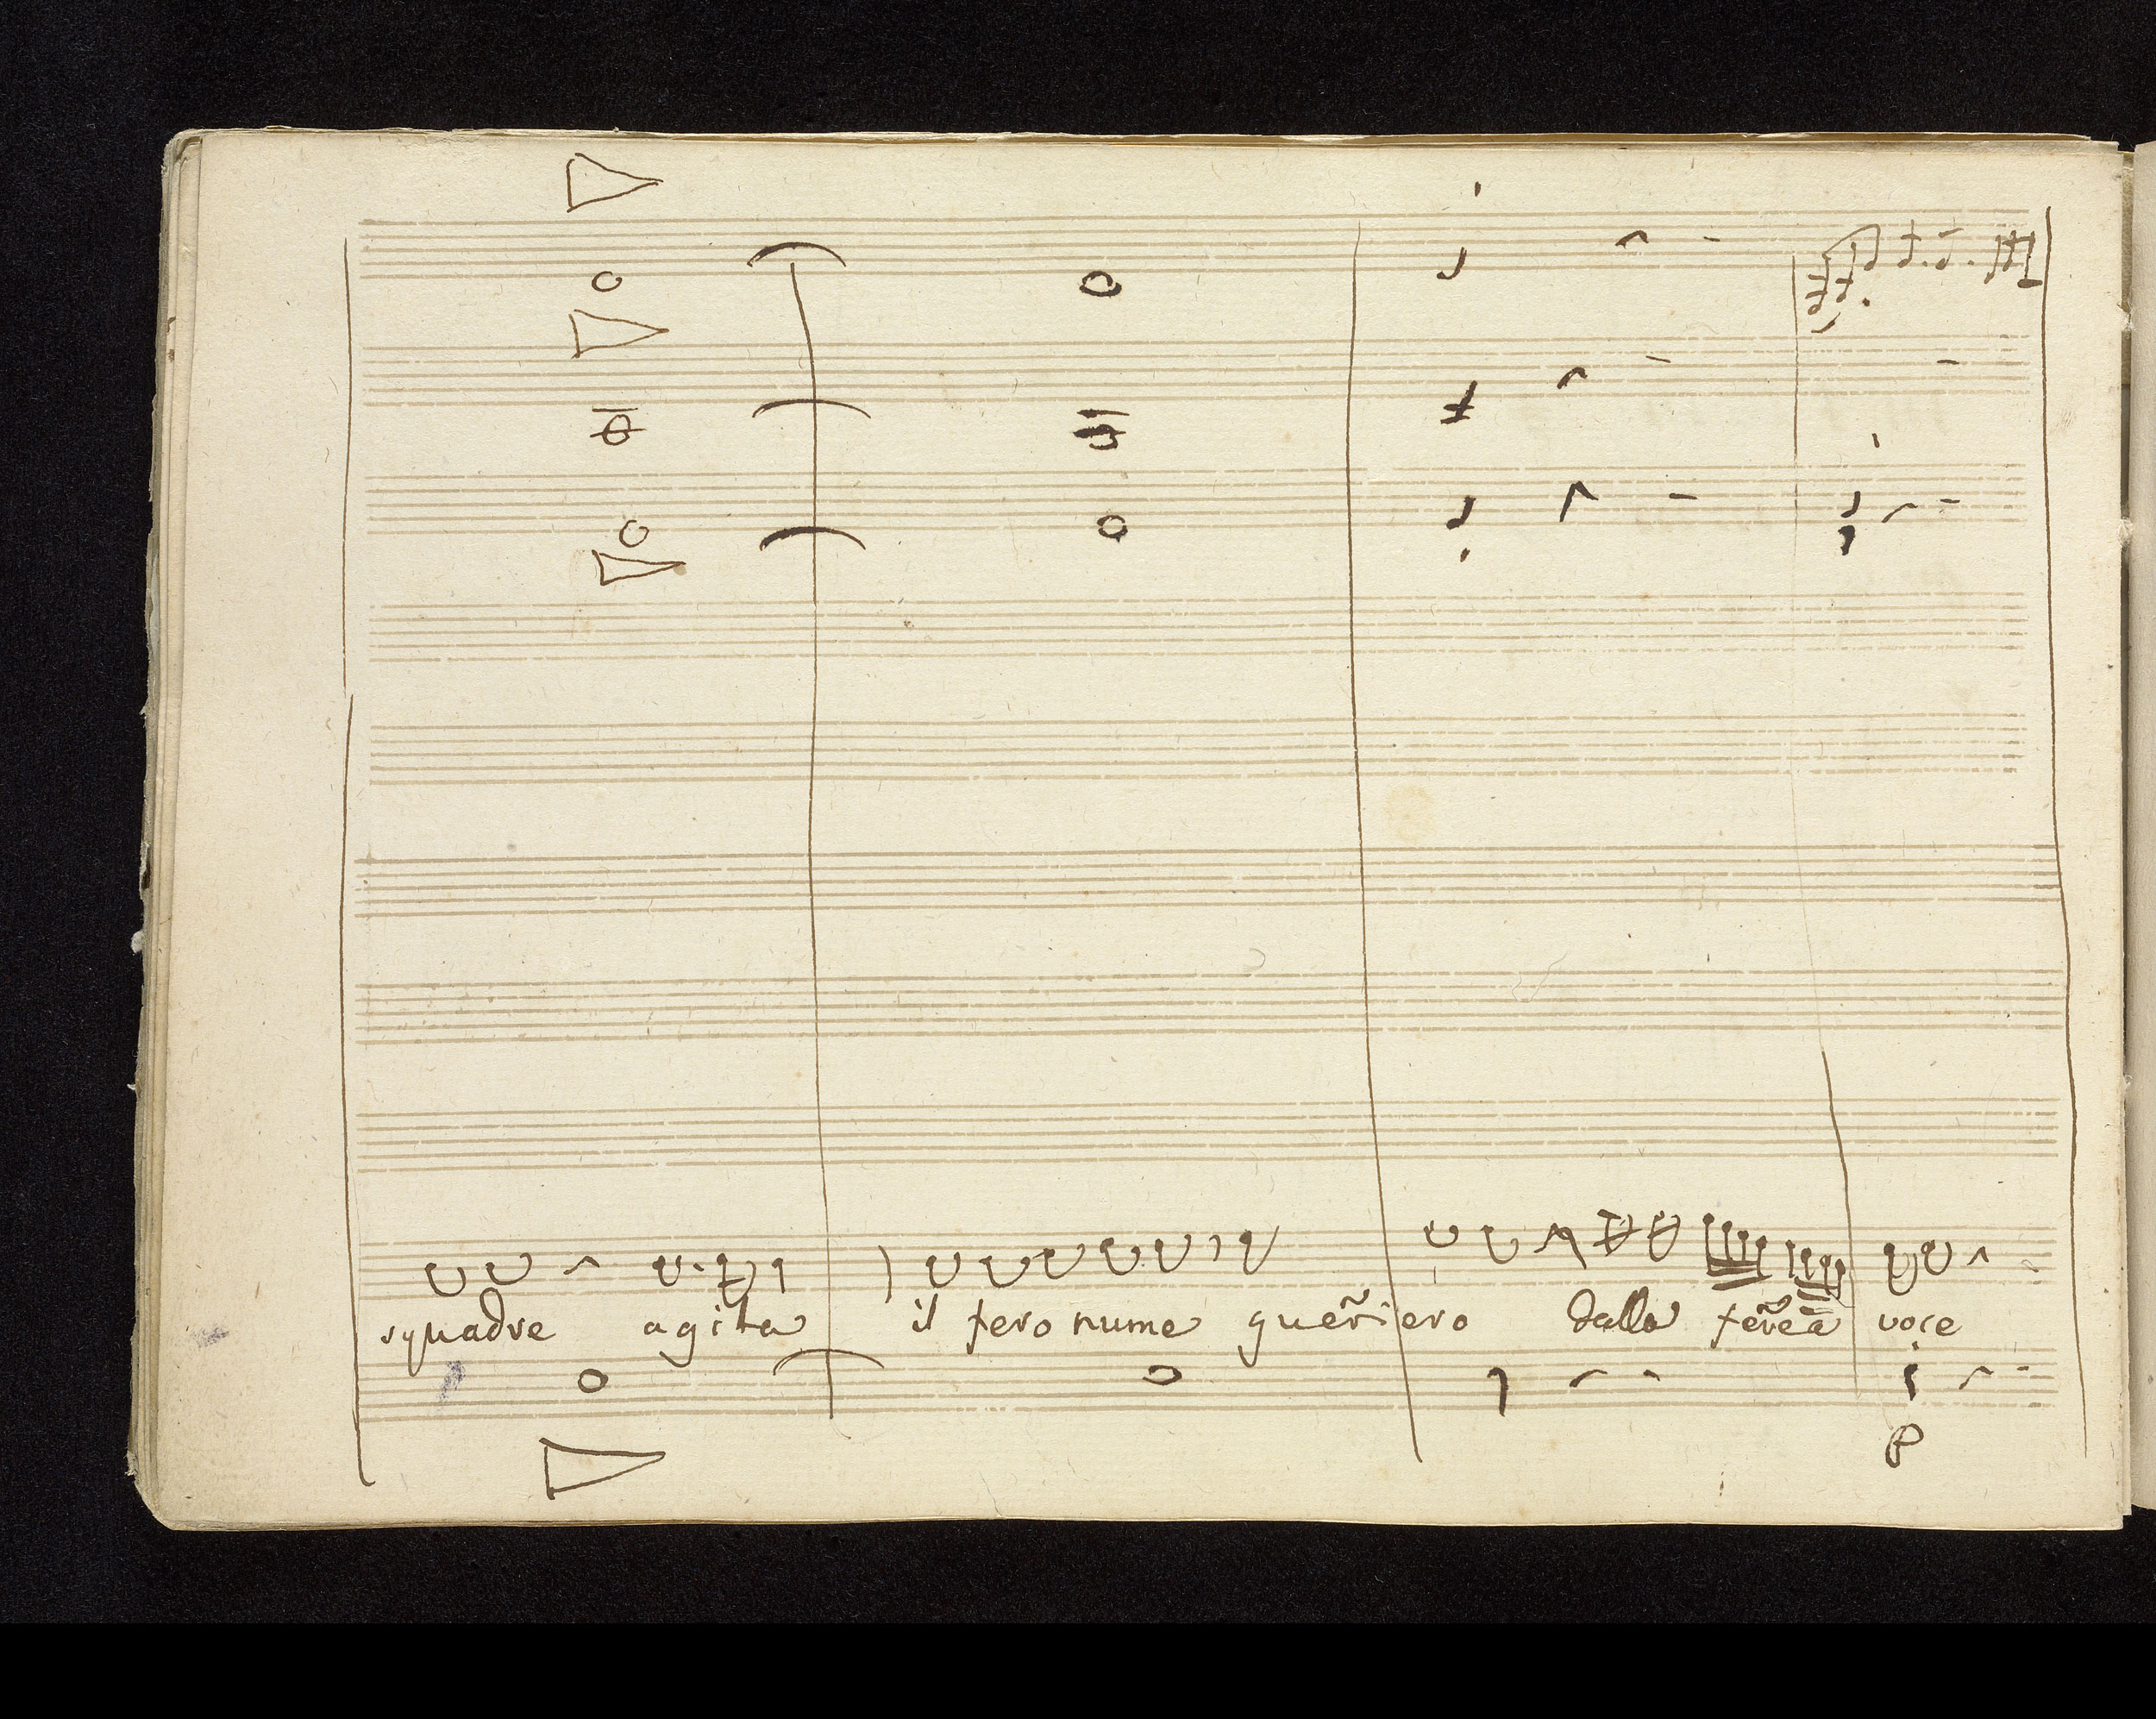 squadre agita il fero nume guer̃iero dalla fer̃ea voce
P